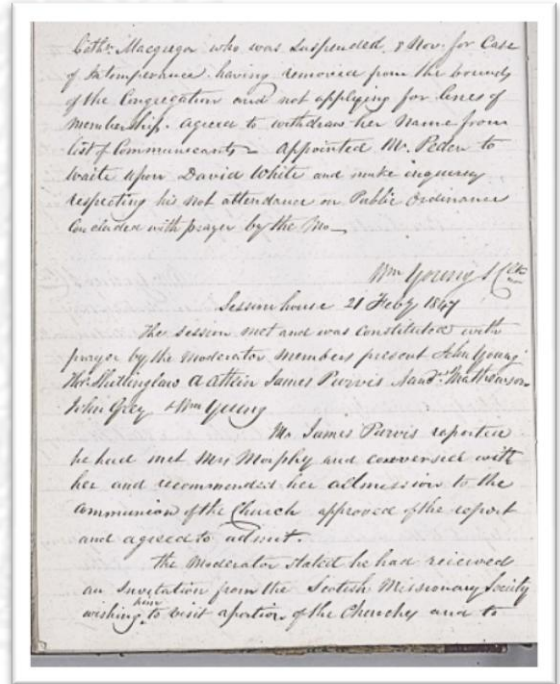 Cathr. Macgregor who was suspended, 8 Nov. for Case
of Intemperance. having removed from the bounds
of the Congregation and not applying for lines of
membership. agreed to withdraw her name from
list of Communicants — appointed Mr. Peden to
waite upon David White and make inquiery
respecting his not attendance on Public Ordinance
Concluded with prayer by the Mo—
Wm Young S. Clk
Session house 21 Feby 1847
The Session met and was Constituted with
prayer by the moderator members present John Young
Thos. Shillinglaw A Aitkin James Purvis Matheson
John Grey & Wm Young
Mr. James Purvis reported
he had met Mrs Morphy and conversed with
her and recommended her admission to the
Communion of the Church approved of the report
and agreed to admit.
The Moderator Stated he had reicived
an Invitation from the Scotish Missionary Society
wishing him to visit aportion of the Churches and to